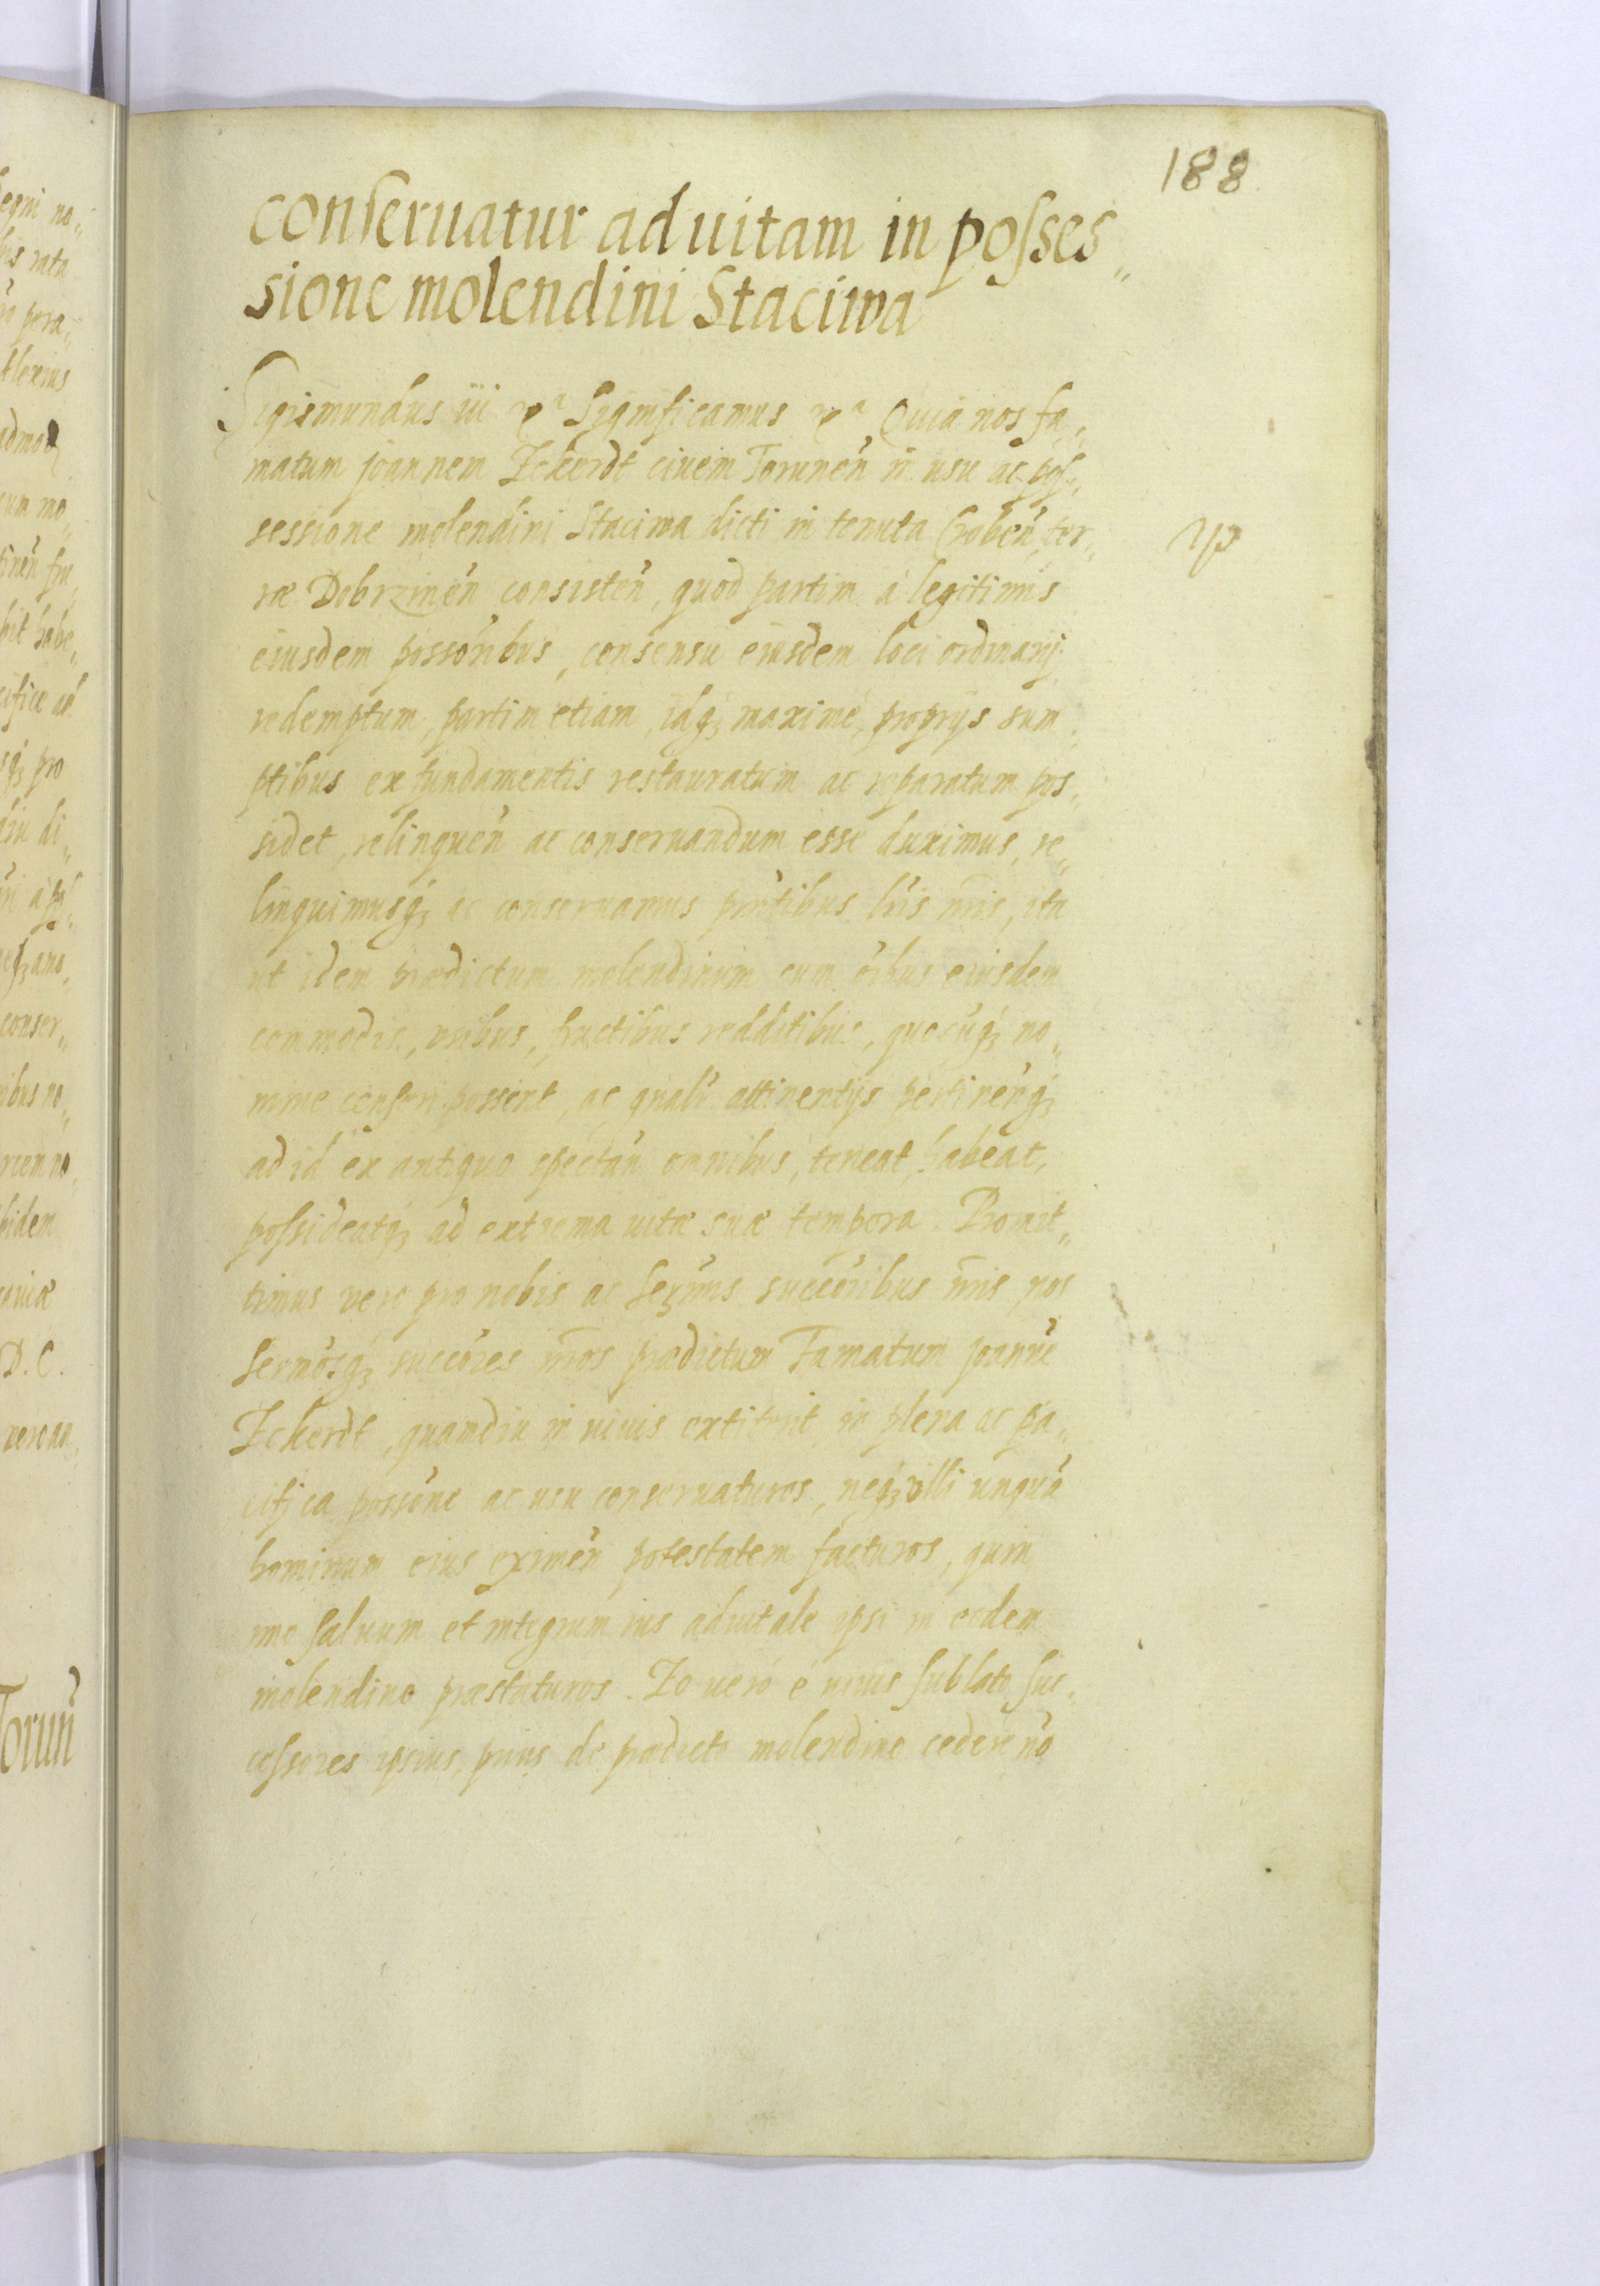 188
conseruatur ad uitam in posses„
sione molendini Staciwa
Sigismundus iii &c Significamus &c Quia nos fa„
matum joannem Eckerdt ciuem Torunen̄ in usu ac pos„
sessione molendini Staciwa dicti in tenuta Boben̄ ter„
ræ Dobrzinen̄ consisten̄, quod partim à legitimis
eiusdem posso̅ribus, consensu eiusdem loci ordinarij
redemptum, partim etiam, idq; maximè, proprijs sum„
ptibus ex fundamentis restauratum ac reparatum pos„
sidet, relinquen̄ ac conseruandum esse duximus, re„
linquimusq; ac conseruamus pn̄tibus lr̄is nr̄is, ita
ut idem prædictum molendinum cum oībus eiusdem
commodis, usibus, fructibus redditibus, quocūq; no„
mine censeri possent, ac qualr̄ attinentijs pertinen̄q;
ad id ex antiquo spectan̄ omnibus, teneat, habeat,
possideatq; ad extrema uitæ suæ tempora. Promit„
timus vero pro nobis ac Ser̄mis succo̅ribus nr̄is nos
Sermōsq; succo̅res nr̄os prædictum Famatum joannē
Eckerdt, quamdiu in uiuis extiterit in plena ac pa„
cifica posso̅ne ac usu conseruaturos, neq; ulli unquā
hominum eius eximen̄ potestatem facturos, quin
imo saluum et integrum ius aduitale ipsi in eodem
molendino præstaturos. Eo uerò è uiuis sublato suc„
cessores ipsius, prius de prædicto molendino cedere nō